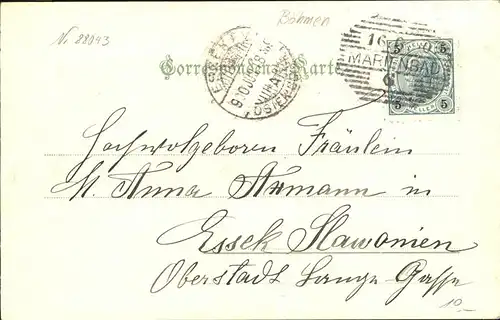 Nr 28943
Böhmen
Correspondenz-Karte
ESSEK
OSIEK
5 5
MARIENBAD
5 5
Hochwolgeboren Fräulein
M. Anna Aumann in
Essek Slawonien
Oberstadt Lange-Gasse
10.-